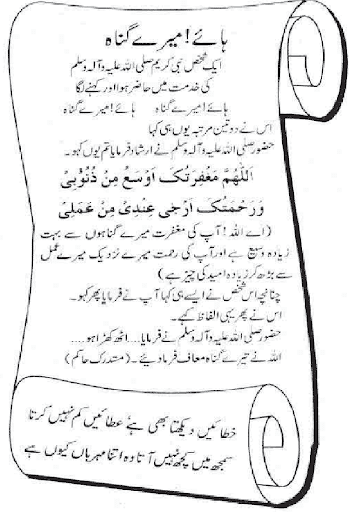 ہائے! میرے گناہ
ایک شخص نبی کریم صلی اللہ علیہ وآلہ وسلم
کی خدمت میں حاضر ہوا اور کہنے لگا
ہائے! میرے گناہ ہائے! میرے گناہ
اس نے دو تین مرتبہ یوں ہی کہا
حضور صلی اللہ علیہ وآلہ وسلم نے ارشاد فرمایا تم یوں کہو۔
اَللّٰهُمَّ مَغْفِرَتُکَ اَوْسَعُ مِنْ ذُنُوْبِیْ
وَرَحْمَتُکَ اَرْجٰی عِنْدِیْ مِنْ عَمَلِیْ
(اے اللہ! آپ کی مغفرت میرے گناہوں سے بہت
زیادہ وسیع ہے اور آپ کی رحمت میرے نزدیک میرے عمل
سے بڑھ کر زیادہ امید کی چیز ہے)
چنانچہ اس شخص نے ایسے ہی کہا آپ نے فرمایا پھر کہو۔
اس نے پھر یہی الفاظ کہے۔
حضور صلی اللہ علیہ وآلہ وسلم نے فرمایا.... اٹھ کھڑا ہو....
اللہ نے تیرے گناہ معاف فرما دیئے۔ (مستدرک حاکم)
خطائیں دیکھتا بھی ہے عطائیں کم نہیں کرتا
سمجھ میں کچھ نہیں آتا وہ اتنا مہرباں کیوں ہے